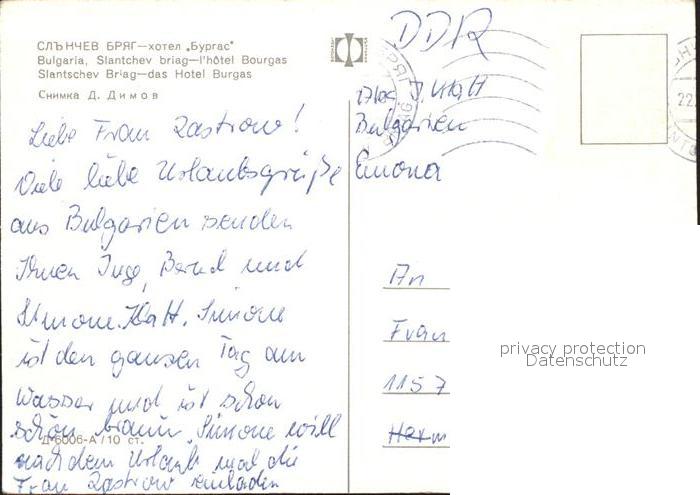 СЛЪНЧЕВ БРЯГ—хотел „Бургас"
Bulgaria, Slantchev briag—l'hôtel Bourgas
Slantschev Briag—das Hotel Burgas
Снимка Д. Димов
DDR
I. Klatt
Bulgarien
Emona
Liebe Frau Zastrow!
Viele liebe Urlaubsgrüße
aus Bulgarien senden
Ihnen Inge, Bernd und
Simone Klatt. Simone
ist den ganzen Tag am
Wasser und ist schon
schön braun. Simone will
nach dem Urlaub mal die
Frau Zastrow einladen
Д-6006-А/10 ст.
An
Frau
1157
Herm
privacy protection
Datenschutz
22.